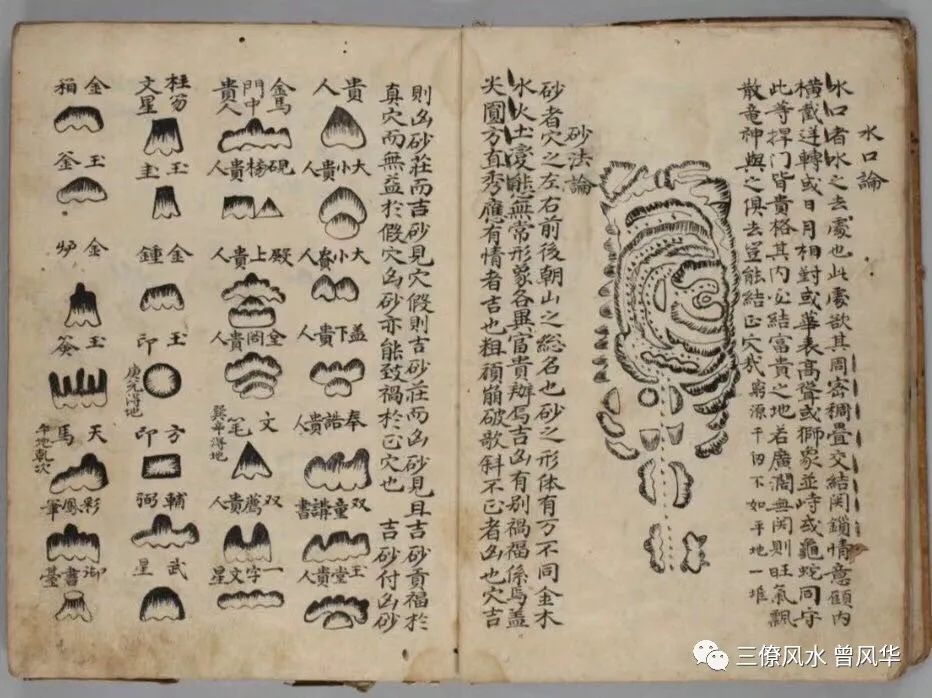 水口論
水口者水之去處也此處欲其周密稠疊交結関鎖情意顧内
橫截逆轉或日月相對或華表高聳或獅象並峙或龜蛇同守
此等捍門皆貴格其内必結富貴之地若廣濶無関則旺氣飄
散竜神與之俱去豈能結正穴哉 窮源千仞不如平地一堆
砂法論
砂者穴之左右前後朝山之総名也砂之形体有万不同金木
水火土変態無常形象各異富貴辦焉吉凶有别禍福係焉蓋
尖圓方直秀應有情者吉也粗頑崩破歌斜不正者凶也穴吉
則凶砂莊而吉砂見穴假則吉砂莊而凶砂見且吉砂貢福於
真穴而無益於假穴凶砂亦能致禍於正穴也 吉砂付凶砂
貴人
大小貴人
大小貴人
盖下貴人
奉誥貴人
双童講書
玉堂貴人
金馬門中貴人
硯楊貴人
殿上貴人
全罔貴人
文笔
巽辛得地
双薦貴人
一字文星
柱笏文星
玉圭
金鍾
玉印
庚兌得地
方印
輔弼
武星
金箱
玉釜
金炉
玉䇠
天馬
午地乾次
彩鳳筆
御書臺
三僚风水 曾风华